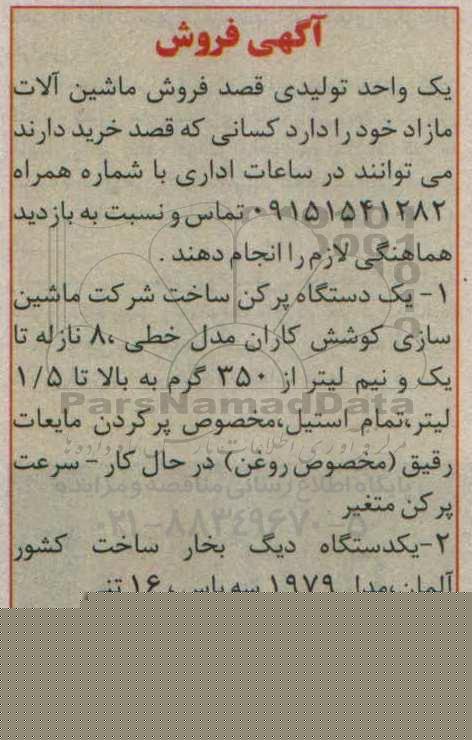 آگهی فروش
یک واحد تولیدی قصد فروش ماشین آلات
مازاد خود را دارد کسانی که قصد خرید دارند
می توانند در ساعات اداری با شماره همراه
۰۹۱۵۱۵۴۱۲۸۲ تماس و نسبت به بازدید
هماهنگی لازم را انجام دهند .
۱- یک دستگاه پرکن ساخت شرکت ماشین
سازی کوشش کاران مدل خطی ،۸ نازله تا
یک و نیم لیتر از ۳۵۰ گرم به بالا تا ۱/۵
لیتر،تمام استیل،مخصوص پرکردن مایعات
رقیق (مخصوص روغن) در حال کار - سرعت
پرکن متغیر
۲-یکدستگاه دیگ بخار ساخت کشور
آلمان،مدل ۱۹۷۹ سه پاس ، ۱۶ تنی
ParsNamadData
پایگاه اطلاع رسانی مناقصه و مزایده
۰۲۱-۸۸۳۴۹۶۷۰-۵